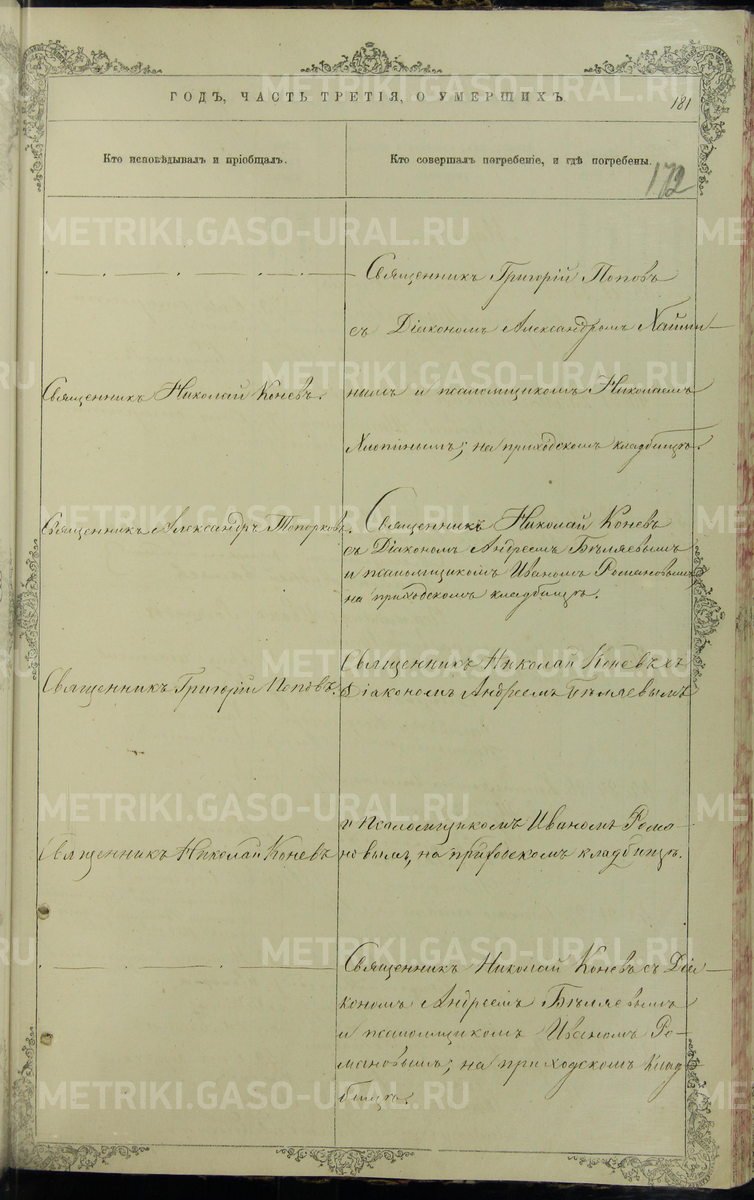 ГОДЪ, ЧАСТЬ ТРЕТІЯ, О УМЕРШИХЪ
181
Кто исповѣдывалъ и пріобщалъ.
Кто совершалъ погребеніе, и гдѣ погребены.
172
Священникъ Григорій Поповъ
съ Діакономъ Александромъ
Священникъ Николай Коневъ.
нымъ и псаломщикомъ Николаемъ
Хлопинымъ; на приходскомъ кладбищѣ.
Священникъ Александръ Топорковъ.
Священникъ Николай Коневъ
съ Діакономъ Андреемъ Бѣляевымъ
и псаломщикомъ Иваномъ Романовымъ
на приходскомъ кладбищѣ.
Священникъ Григорій Поповъ.
Священникъ Николай Коневъ съ
Діакономъ Андреемъ Бѣляевымъ
и псаломщикомъ Иваномъ Рома-
новымъ, на приходскомъ кладбищѣ.
Священникъ Николай Коневъ
Священникъ Николай Коневъ съ Діа-
кономъ Андреемъ Бѣляевымъ
и псаломщикомъ Иваномъ Ро-
мановымъ; на приходскомъ клад-
бищѣ.
METRIKI.GASO-URAL.RU